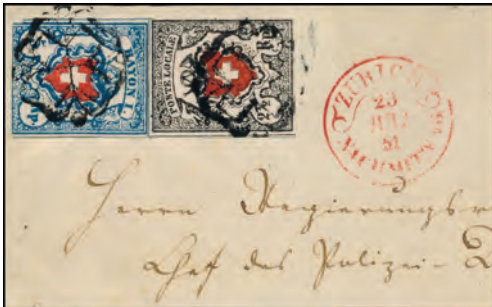 RAYON I.
Rp.
POSTE LOCALE
2½ Rp.
ZÜRICH
23
51
NACHMITTAG
Herrn Regierungsr
Chef des Polizei-